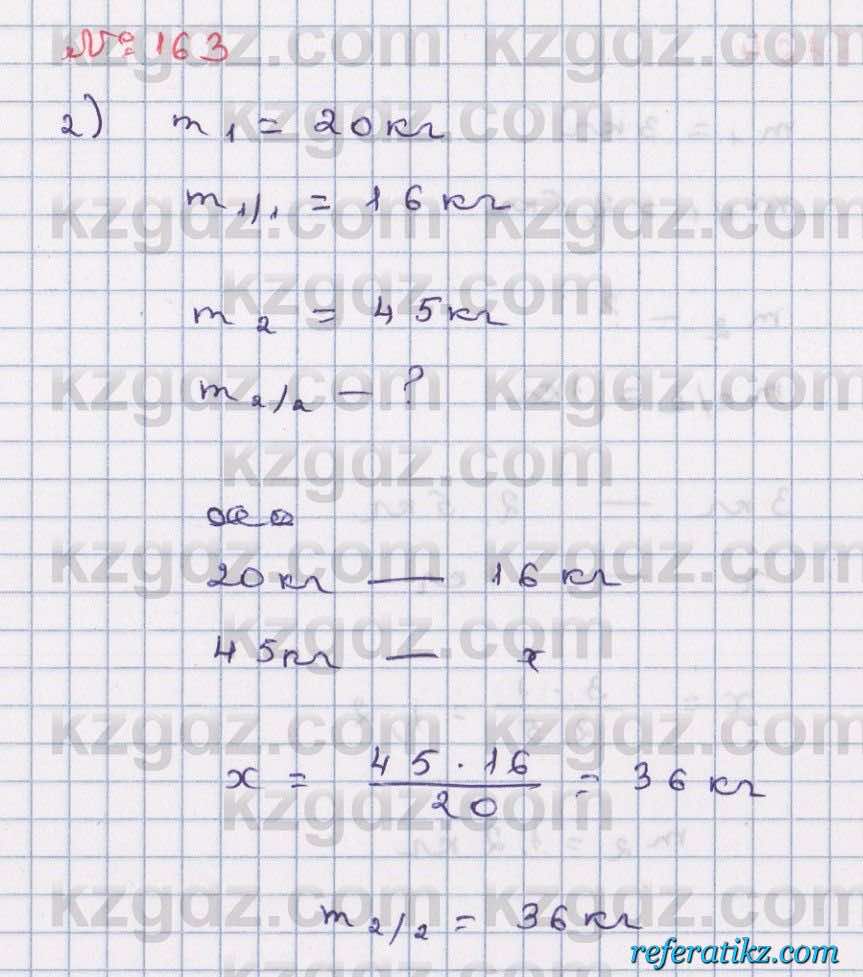 № 163
2) m₁ = 20 кг
m₁/₁ = 16 кг
m₂ = 45 кг
m₂/₂ — ?
20 кг — 16 кг
45 кг — x
x = 45 · 16 / 20 = 36 кг
m₂/₂ = 36 кг
kzgdz.com
referatikz.com